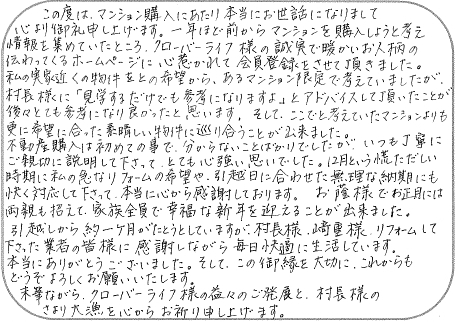 この度は、マンション購入にあたり本当にお世話になりまして
心より御礼申し上げます。一年ほど前からマンションを購入しようと考え
情報を集めていたところ、クローバーライフ様の誠実で暖かいお人柄の
伝わってくるホームページに心惹かれて会員登録をさせて頂きました。
私の実家近くの物件をとの希望から、あるマンション限定で考えていましたが、
村長様に「見学するだけでも参考になりますよ」とアドバイスして頂いたことが
後々とても参考になり良かったと思います。そして、ここでと考えていたマンションよりも
更に希望に合った素晴しい物件に巡り合うことが出来ました。
不動産購入は初めての事で、分からないことばかりでしたが、いつも丁寧に
ご親切に説明して下さって、とても心強い思いでした。12月という慌ただしい
時期に私の急なリフォームの希望や、引越日に合わせた無理な納期にも
快く対応して下さって、本当に心から感謝しております。お蔭様でお正月には
両親も招えて、家族全員で幸福な新年を迎えることが出来ました。
引越しから約一ケ月がたとうとしていますが、村長様、崎重様、リフォームして
下さった業者の皆様に感謝しながら毎日快適に生活しています。
本当にありがとうございました。そして、この御縁を大切に、これからも
どうぞよろしくお願いいたします。
末筆ながら、クローバーライフ様の益々のご発展と、村長様の
さより大漁を心からお祈り申し上げます。